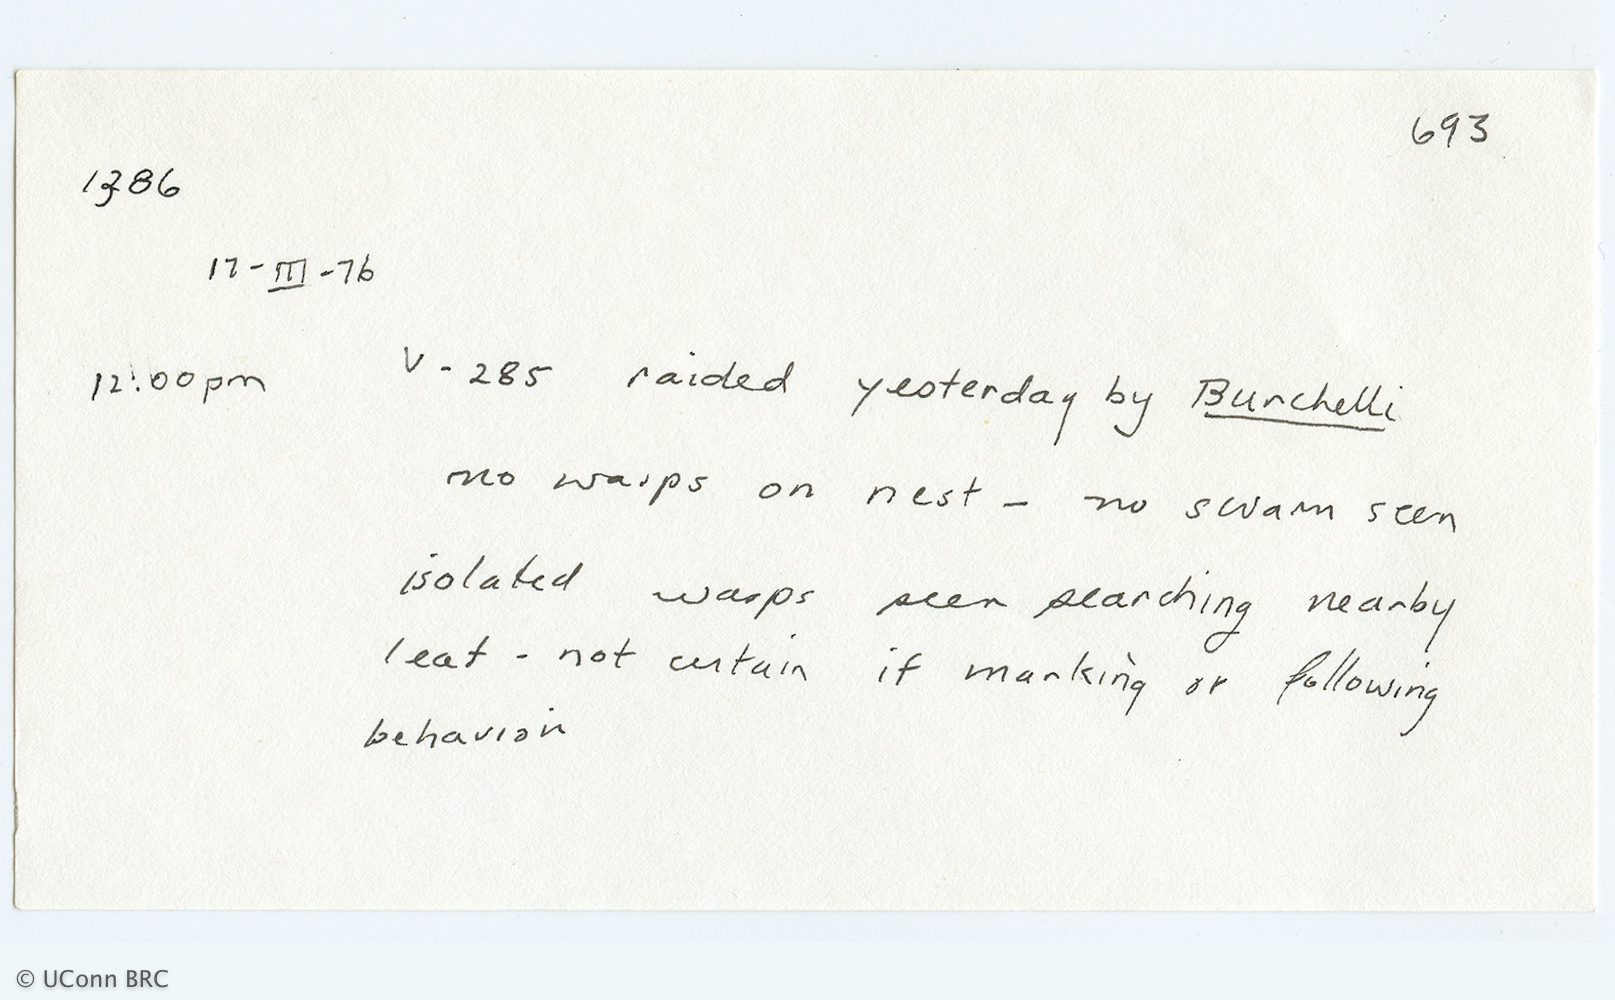 693
1386
17-III-76
12:00pm V-285 raided yesterday by Burchelli
no wasps on nest - no swarm seen
isolated wasps seen searching nearby
leaf - not certain if marking or following
behavior
© UConn BRC